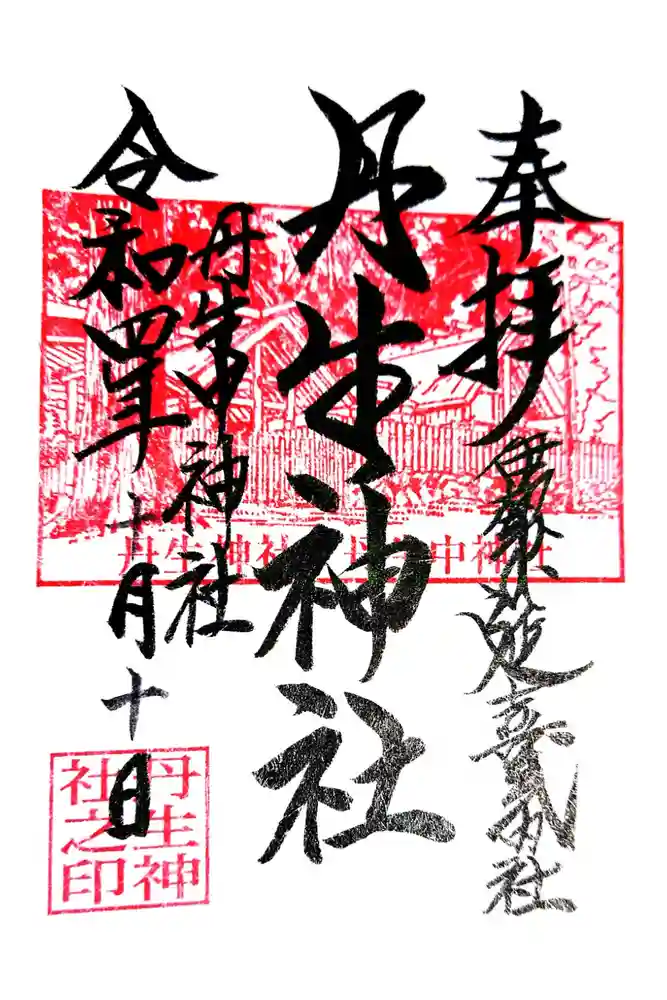 奉拝
延喜式内社
丹生神社
丹生中神社
令和四年十月十日
丹生神社 丹生中神社
丹生神
社之印